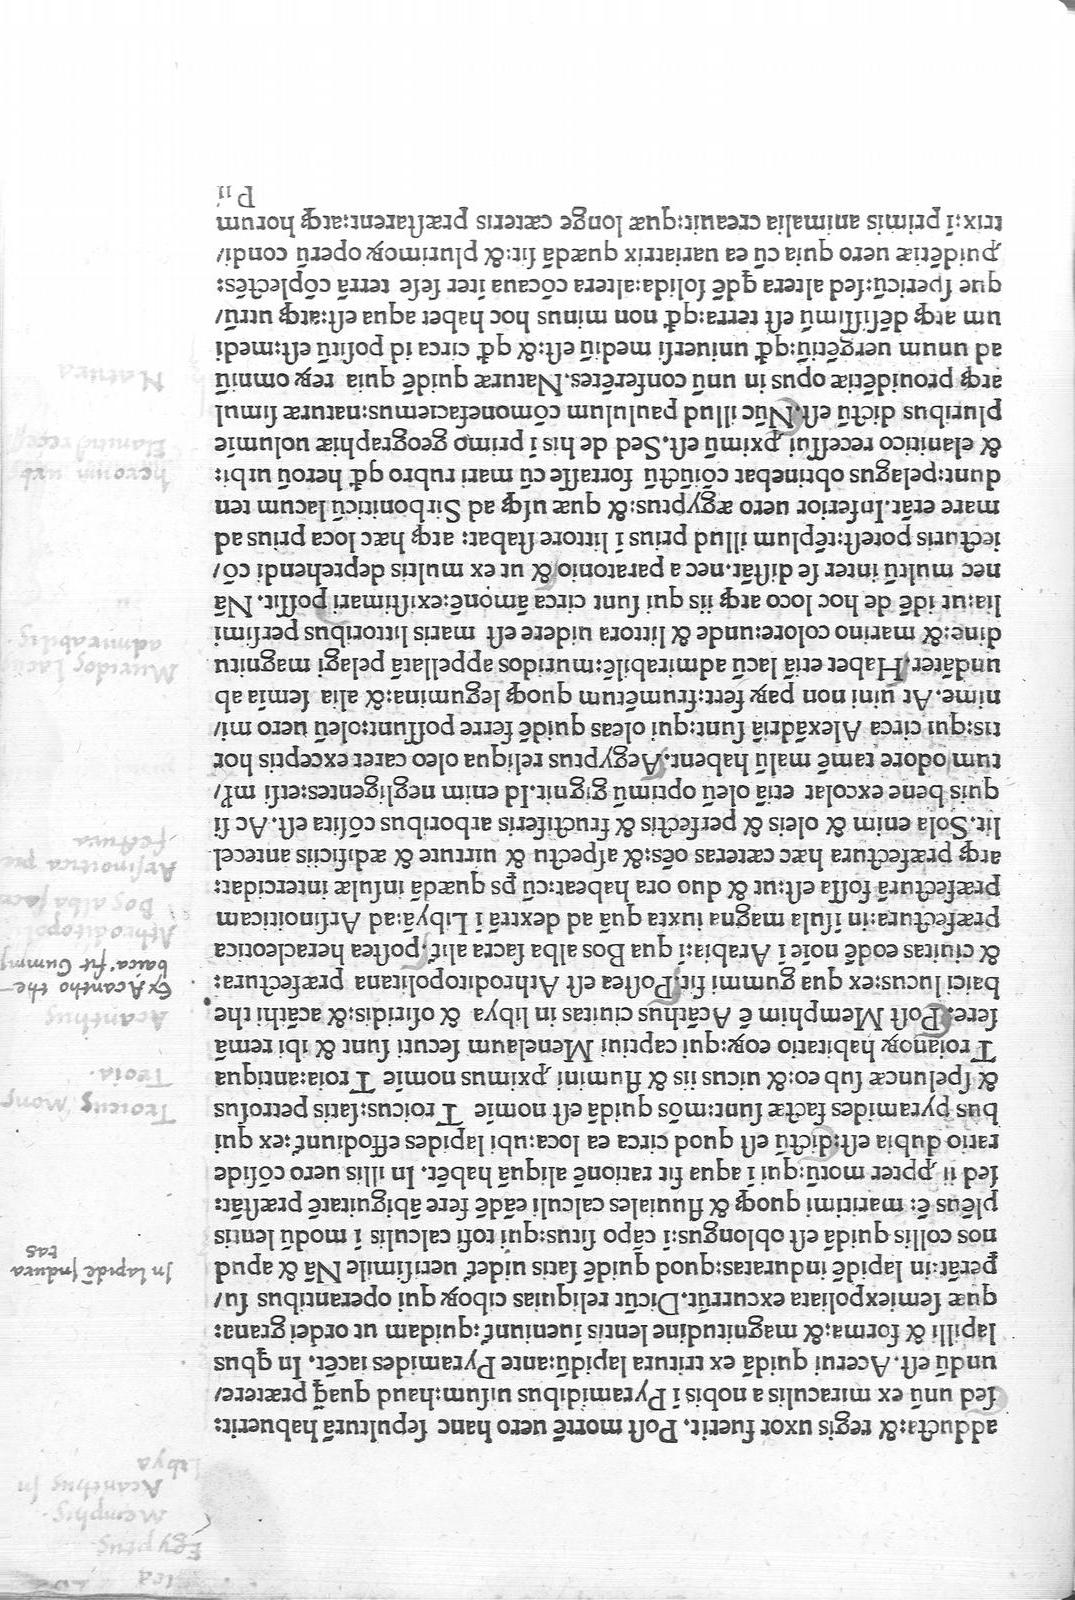 adducta:& regis uxor fuerit. Post mortē uero hanc sepulturā habuerit:
sed unū ex miraculis a nobis ī Pyramidibus uisum:haud quaq̄ præterere/
undū est. Acerui quidā ex tritura lapidū:ante Pyramides iacēt. In qbus
lapilli & forma:& magnitudine lentis īueniunt᷑:quidam ut ordei grana:
quæ semiexpoliata excurrūt.Dicūt reliquias ciboꝝ qui operantibus su/
perāt:in lapidē induratas:quod quidē satis uidet᷑ uerisimile Nā & apud
nos collis quidā est oblongus:ī cāpo situs:qui tofi calculis ī modū lentis
plēus ē: maritimi quoqꝫ & fluuiales calculi eādē fere ābiguitatē præstāt:
sed ii ꝓpter motū:qui ī aqua fit rationē aliquā habēt. In illis uero cōside
ratio dubia est:dictū est quod circa ea loca:ubi lapides effodiunt᷑:ex qui
bus pyramides factæ sunt:mōs quidā est nomīe Troicus:satis petrosus
& speluncæ sub eo:& uicus iis & flumini ꝓximus nomīe Troia:antiqua
Troianoꝝ habitatio eoꝝ:qui captiui Menelaum secuti sunt & ibi remā
sere: Post Memphim ē Acāthus ciuitas in libya & osiridis:& acāthi the
baici lucus:ex qua gummi fit:Postea est Aphroditopolitana præfectura:
& ciuitas eodē noīe ī Arabia:ī qua Bos alba sacra alit᷑:postea heracleotica
præfectura:in īsula magna iuxta quā ad dextrā ī Libyā:ad Arsinoiticam
præfecturā fossa est:ut & duo ora habeat:cū ꝑs quædā insulæ intercidat:
atqꝫ præfectura hæc cæteras oēs:& aspectu & uirtute & ædificiis antecel
lit.Sola enim & oleis & perfectis & fructiferis arboribus cōsita est. Ac si
quis bene excolat etiā oleū optimū gignit.Id enim negligentes:etsi ml̄/
tum odore tamē malū habent.Aegyptus reliqua oleo caret exceptis hor
tis:qui circa Alexādriā sunt:qui oleas quidē ferre possunt:oleū uero mi/
nime. At uini non paꝝ fert:frumētum quoqꝫ legumina:& alia semīa ab
undāter. Habet etiā lacū admirabilē:muridos appellatā pelagi magnitu
dine:& marino colore:unde & littora uidere est maris littoribus persimi
lia:ut idē de hoc loco atqꝫ iis qui sunt circa āmonē:existimari possit. Nā
nec multū inter se distāt.nec a paratonio/& ut ex multis deprehendi cō/
iecturis potest:tēplum illud prius ī littore stabat: atqꝫ hæc loca prius ad
mare erāt.Inferior uero ægyptus:& quæ usqꝫ ad Sirboniticū lacum ten
dunt:pelagus obtinebat cōiūctū fortasse cū mari rubro qđ heroū urbi:
& elanitico recessui ꝓximū est.Sed de his ī primo geographiæ uolumīe
pluribus dictū est.Nūc illud paululum cōmonefaciemus:naturæ simul
atqꝫ prouidētiæ opus in unū conferētes.Naturæ quidē quia reꝝ omniū
ad unum uergētiū:qđ uniuersi mediū est:& qđ circa id positū est:medi
um atqꝫ dēsissimū est terra:qđ non minus hoc habet aqua est:atqꝫ utrū/
que spericū:sed altera qdē solida:altera cōcaua iter sese terrā cōplectēs:
ꝓuidētiæ uero quia cū ea uariatrix quædā sit:& plurimoꝝ operū condi/
trix:ī primis animalia creauit:quæ longe cæteris præstarent:atqꝫ horum
P ii
Egyptus
Memphis.
Acanthus In
Libya
In lapidē Indura
tas
Troicus Mons
Troia.
Acanthus
Ex Acantho the-
baica fit Gummj
Aphroditopoli
Bos alba sacra
Arsinoitica præ
fectura
Muridos lacus
admirabilis.
heroum urb
Natura